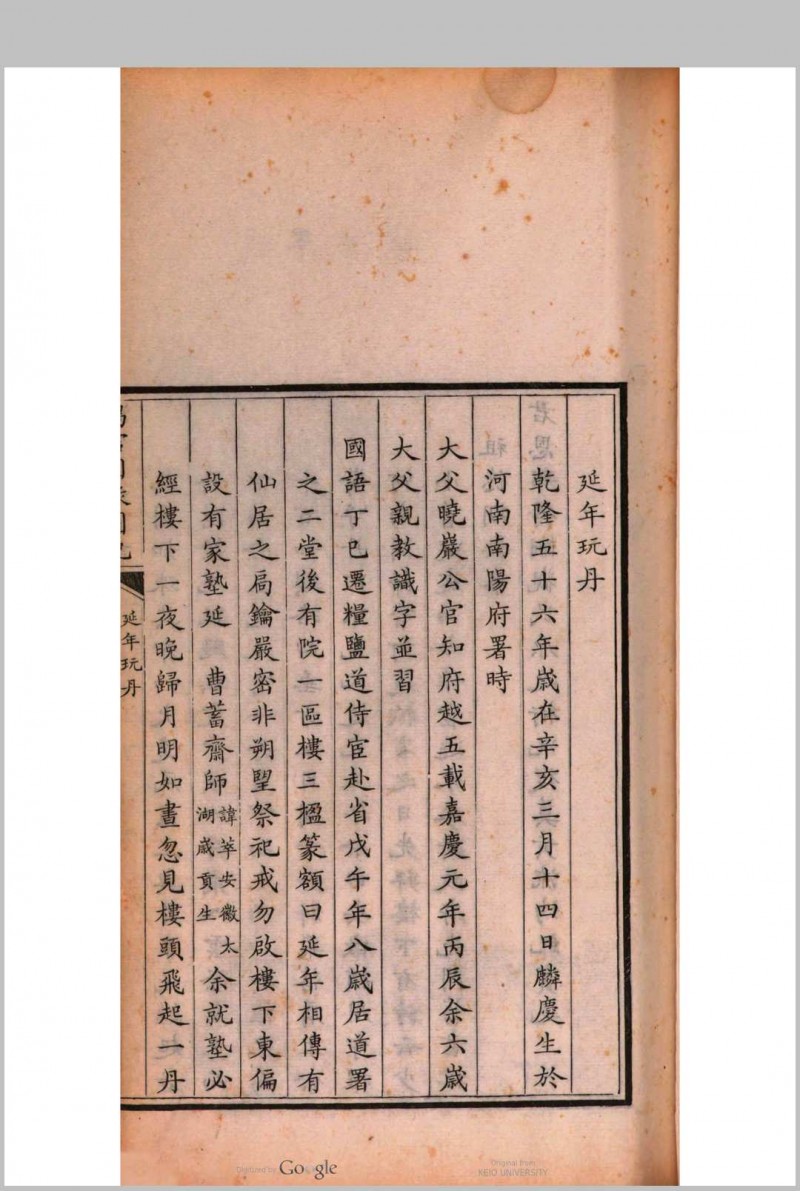 延年玩丹
乾隆五十六年歲在辛亥三月十四日麟慶生於
河南南陽府署時
大父曉巖公官知府越五載嘉慶元年丙辰余六歲
大父親教識字並習
國語丁巳遷糧鹽道侍宦赴省戊午年八歲居道署
之二堂後有院一區樓三楹篆額曰延年相傳有
仙居之扃鑰嚴密非朔望祭祀戒勿啟樓下東偏
設有家塾延 曹蓄齋師諱萃安徽太湖歲貢生余就塾必
經樓下一夜晚歸月明如晝忽見樓頭飛起一丹
延年玩丹
Digitized by Google
Original from
KEIO UNIVERSITY